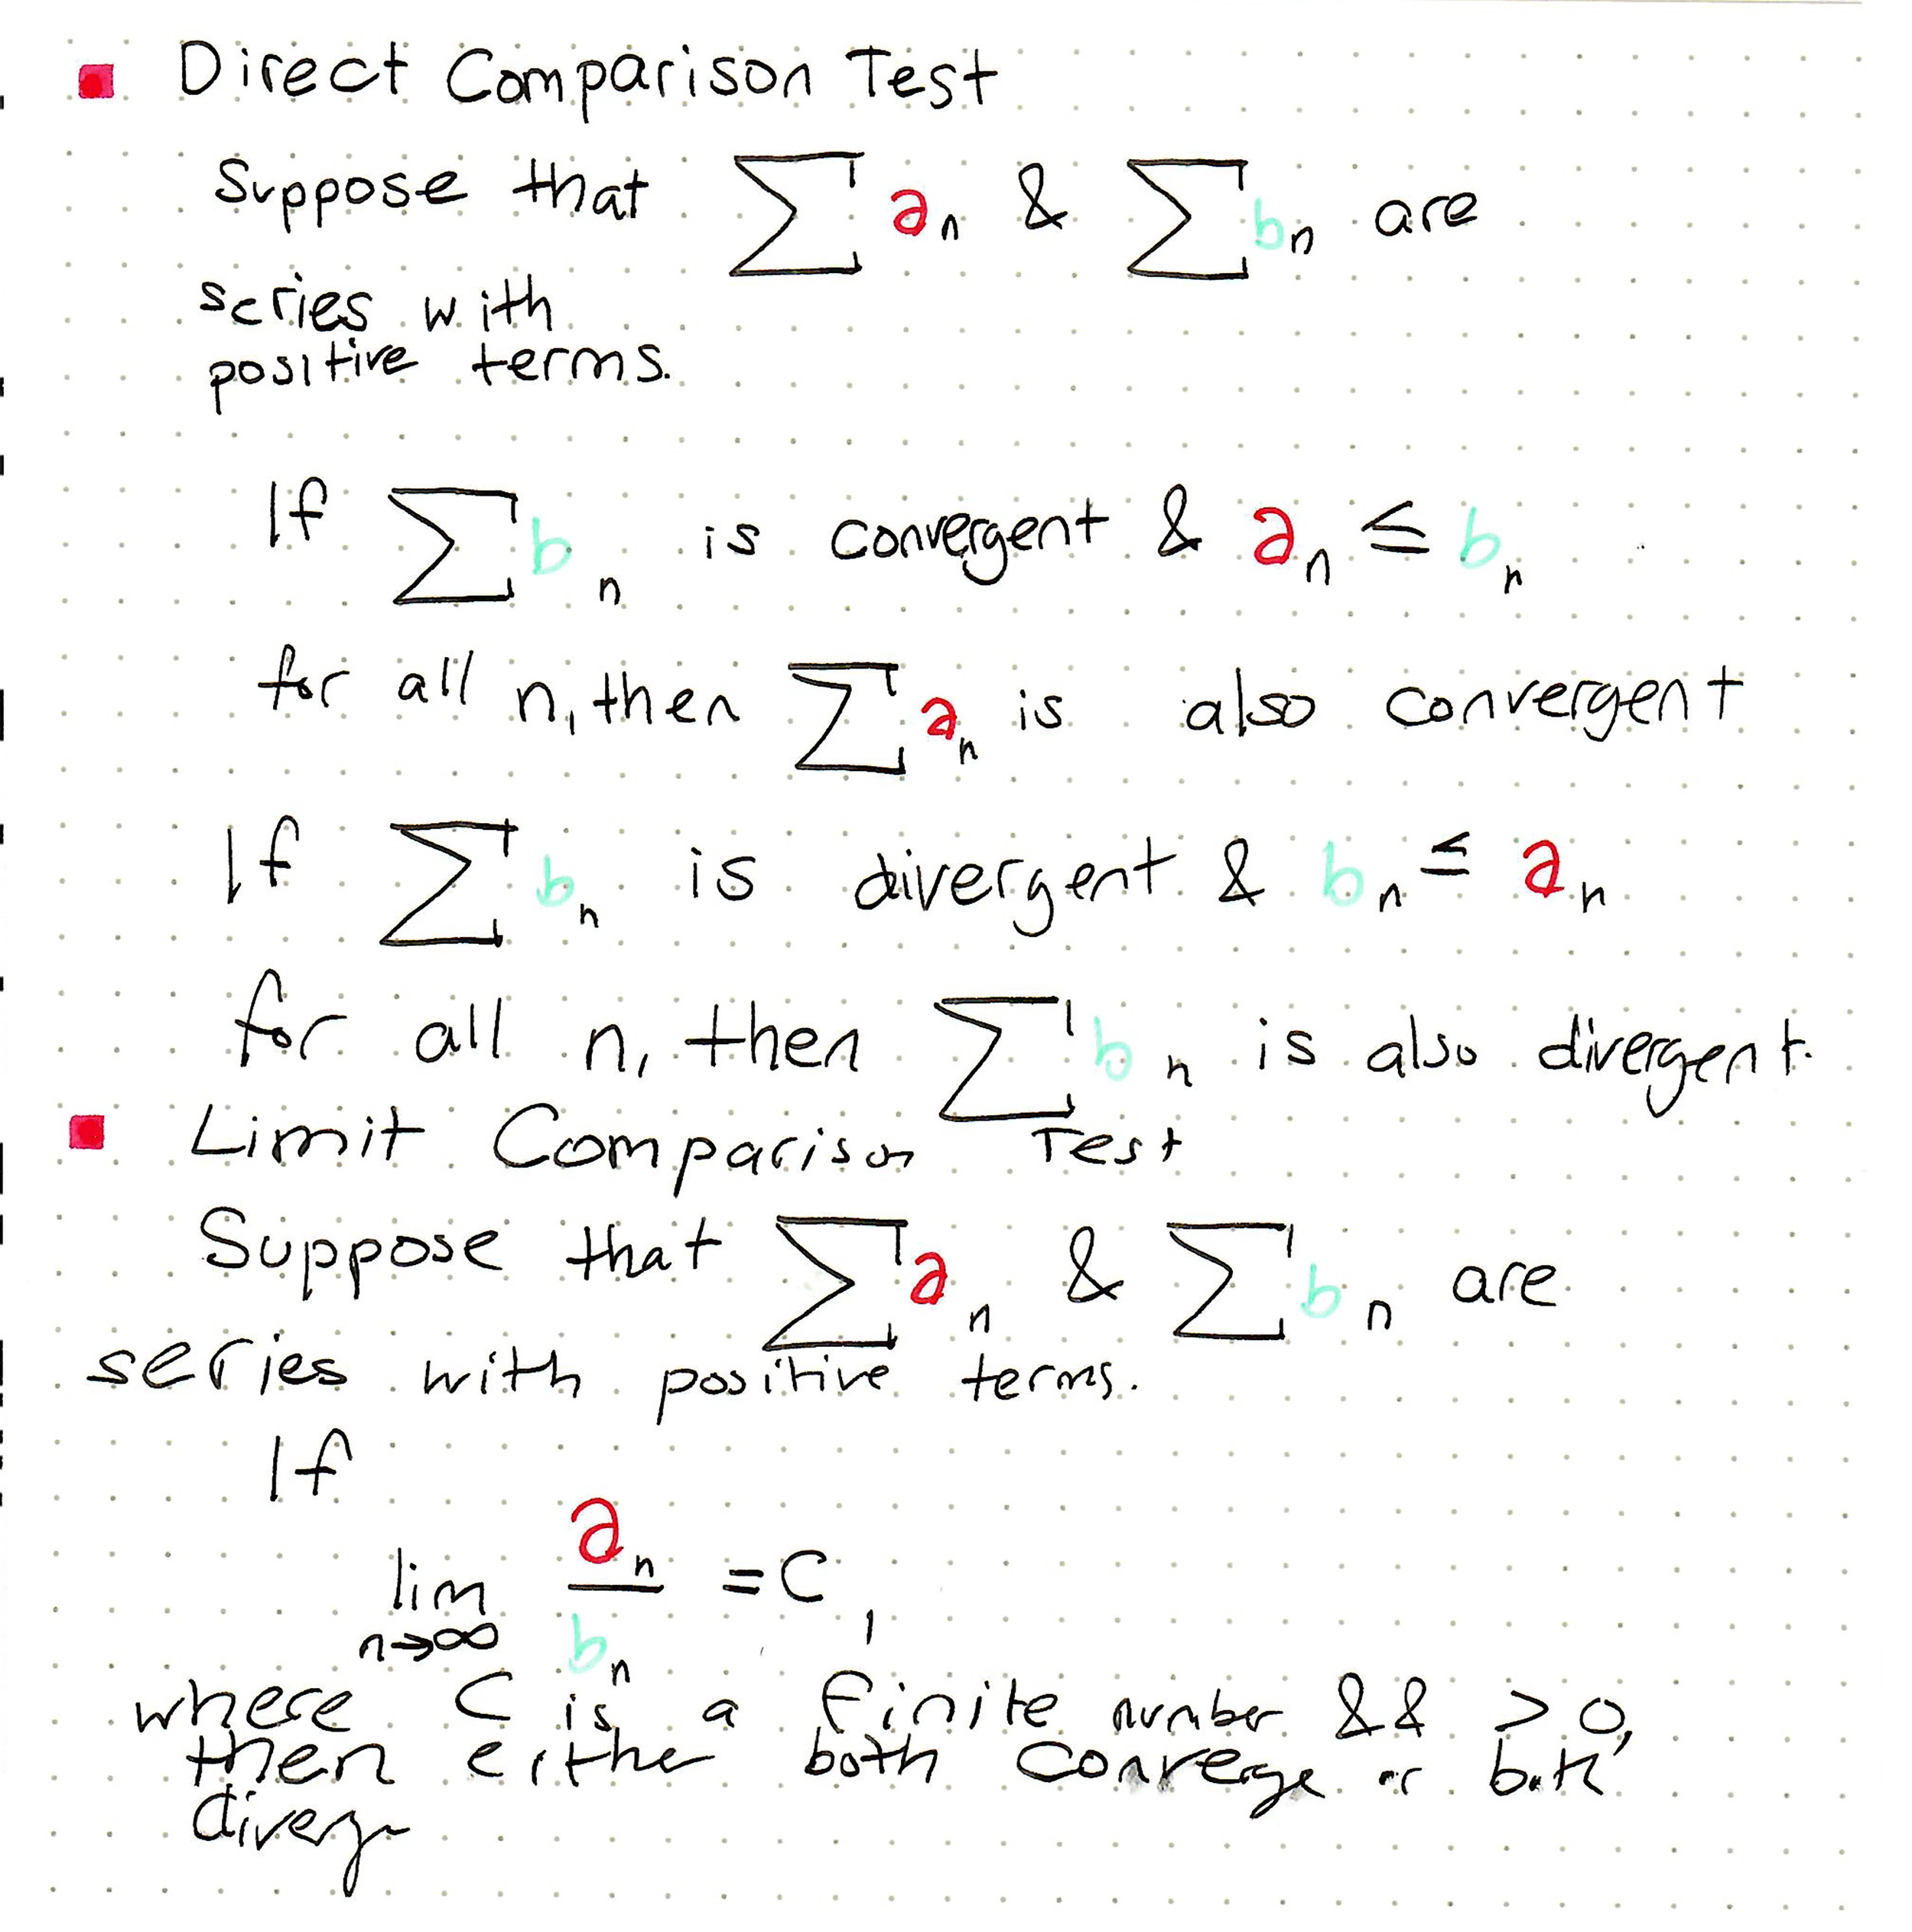 Direct Comparison Test
Suppose that ∑ aₙ & ∑ bₙ are
series with
positive terms.
If ∑ bₙ is convergent & aₙ ≤ bₙ
for all n, then ∑ aₙ is also convergent
If ∑ bₙ is divergent & bₙ ≤ aₙ
for all n, then ∑ bₙ is also divergent.
Limit Comparison Test
Suppose that ∑ aₙ & ∑ bₙ are
series with positive terms.
If
lim n→∞ aₙ / bₙ = C,
where C is a finite number && > 0,
then either both converge or both
diverge